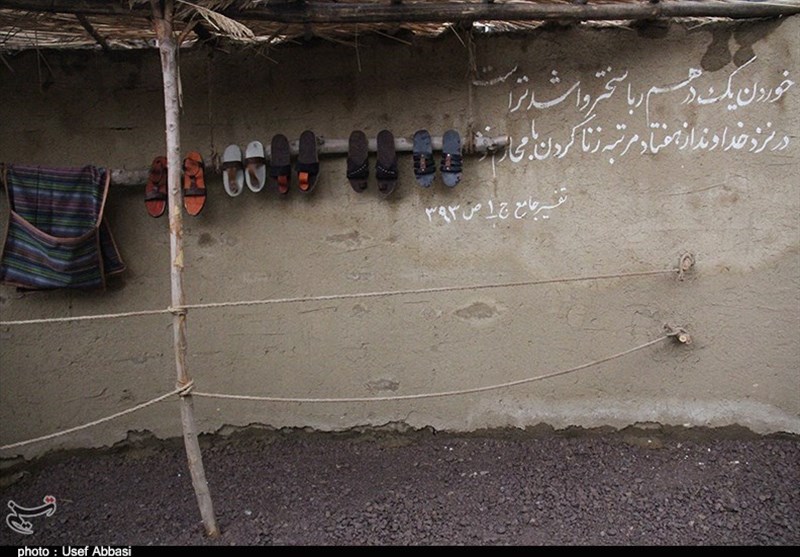 خوردن یک درهم ربا سختر و اشد تراست
در نزد خداوند از هفتاد مرتبه زنا کردن با محارم خود
تفسیر جامع ج ۱ ص ۳۹۳
photo : Usef Abbasi